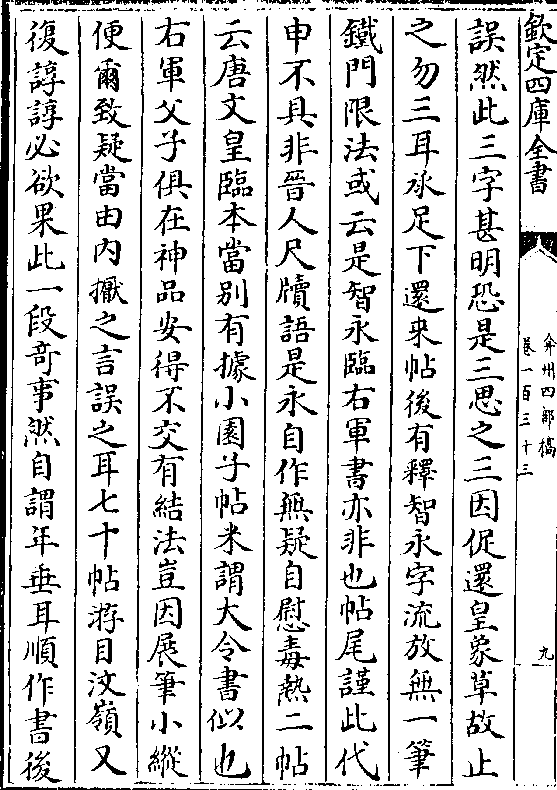 欽定四庫全書
弇州四部稿
卷一百三十三
九
誤然此三字甚明恐是三思之三因促還皇象草故止
之勿三耳承足下還来帖後有釋智永字流放無一筆
鐵門限法或云是智永臨右軍書亦非也帖尾謹此代
申不具非晉人尺牘語是永自作無疑自慰毒熱二帖
云唐文皇臨本當别有據小園子帖米謂大令書似也
右軍父子俱在神品安得不交有結法豈因展筆小縱
便爾致疑當由内擫之言誤之耳七十帖游目汶嶺又
復諄諄必欲果此一段竒事然自謂年垂耳順作書後